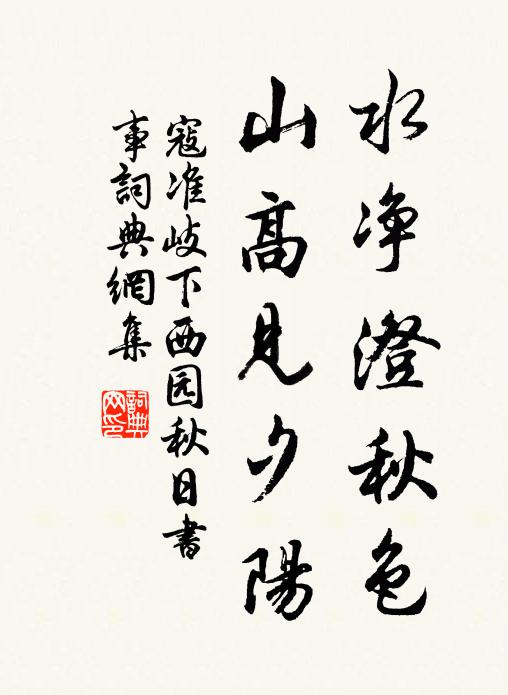 水净澄秋色
山高見夕陽
寇准岐下西园秋日書
事詞典網集
詞典网印